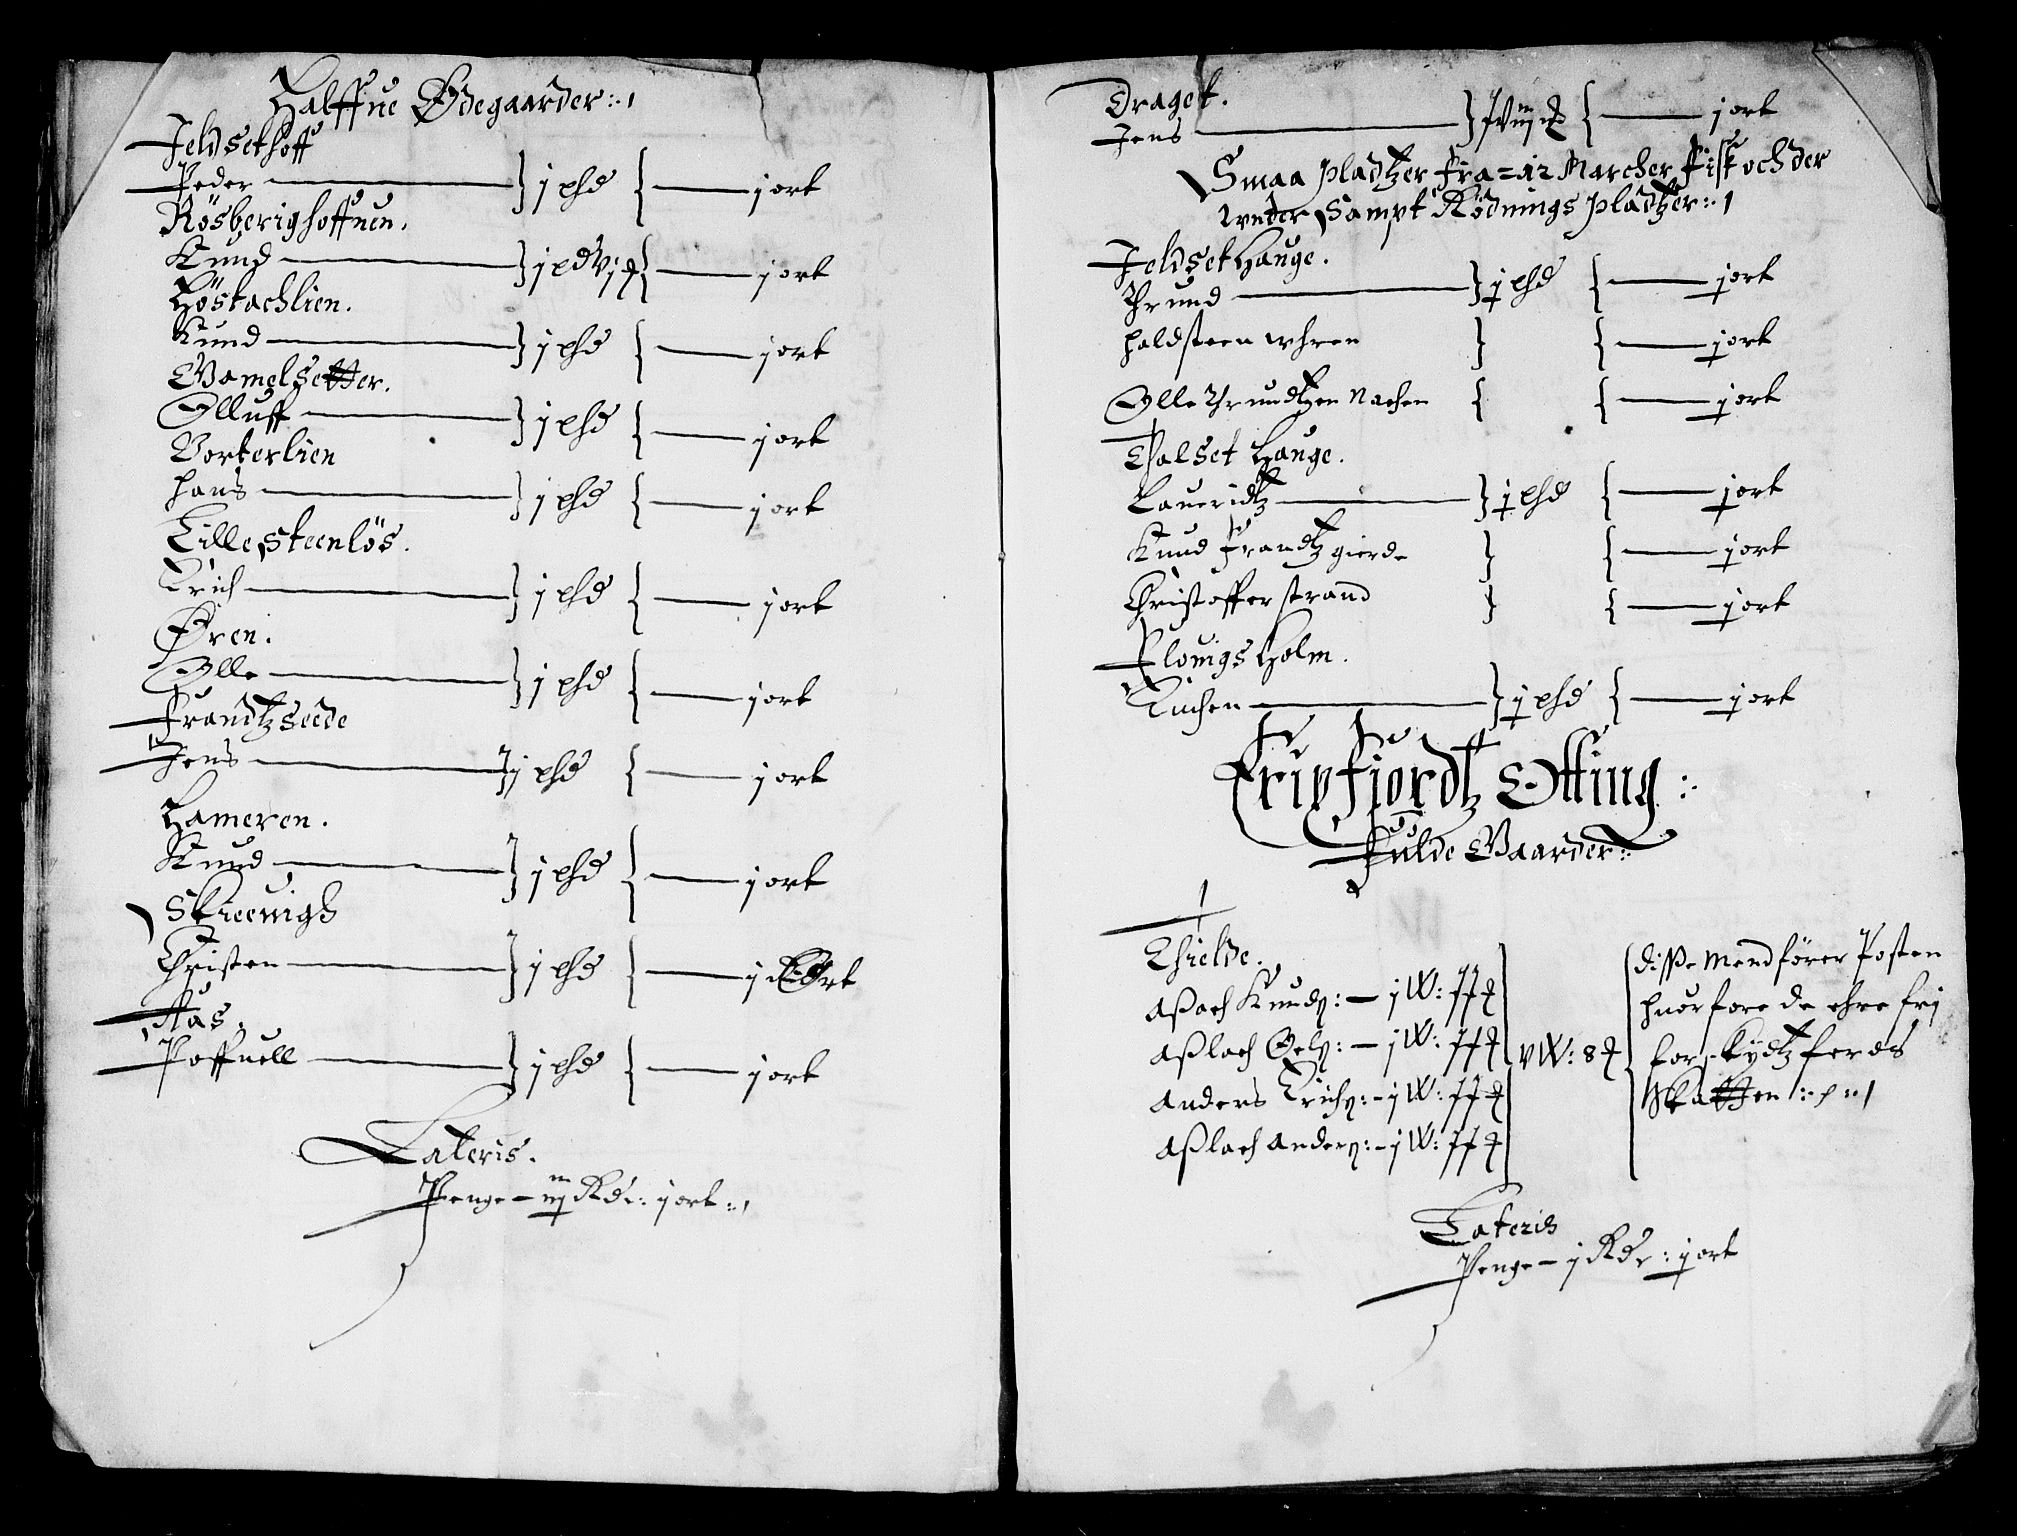 Halffue Ødegaarder::
Jeldsethoff
Peder } j phd { j ort
Rösberighoffuen.
Knud } j pd vj { j ort
Höskachlien.
Knud } j phd { j ort
Gamelsetter.
Olluff } j phd { j ort
Vorkerlien
Hans } j phd { j ort
Lille Steenlös.
Erich } j phd { j ort
Øren.
Olle } j phd { j ort
Frandtzseede
Jens } j phd { j ort
Hameren.
Knud } j phd { j ort
Skieeuigh
Christen } j phd { j Ort
Aas.
Poffuell } j phd { j ort
Lateris.
Penge – Rdr: j ort::
Draget.
Jens } { j ort
Smaa pladtzer fra 12 Marcher fisk och der
wnder Sampt Rödnings pladtzer::
Jeldset Hauge.
Thrund } j phd { j ort
Haldsteen Uhren } { j ort
Olle Thrundtzen Nachen { { j ort
Thalset Hauge.
Laueridtz } j phd { j ort
Knud Frandtz gierde } { j ort
Christoffer Strand } { j ort
Flouigs Holm.
Enchen } j phd { j ort
Fripfiordtz Otting:
Fulde Gaarder::
Thielde.
Aslach Knudz: – j W:
Aslach Oelz: – j W:
Anders Erichz: – j W:
Aslach Anderz: – j W:
} v W: 8 {
disse Mend förer Posten
huorfore de ehre fri
for Skydtzferds
Skatten ::
Lateris
Penge – j Rdr: j ort